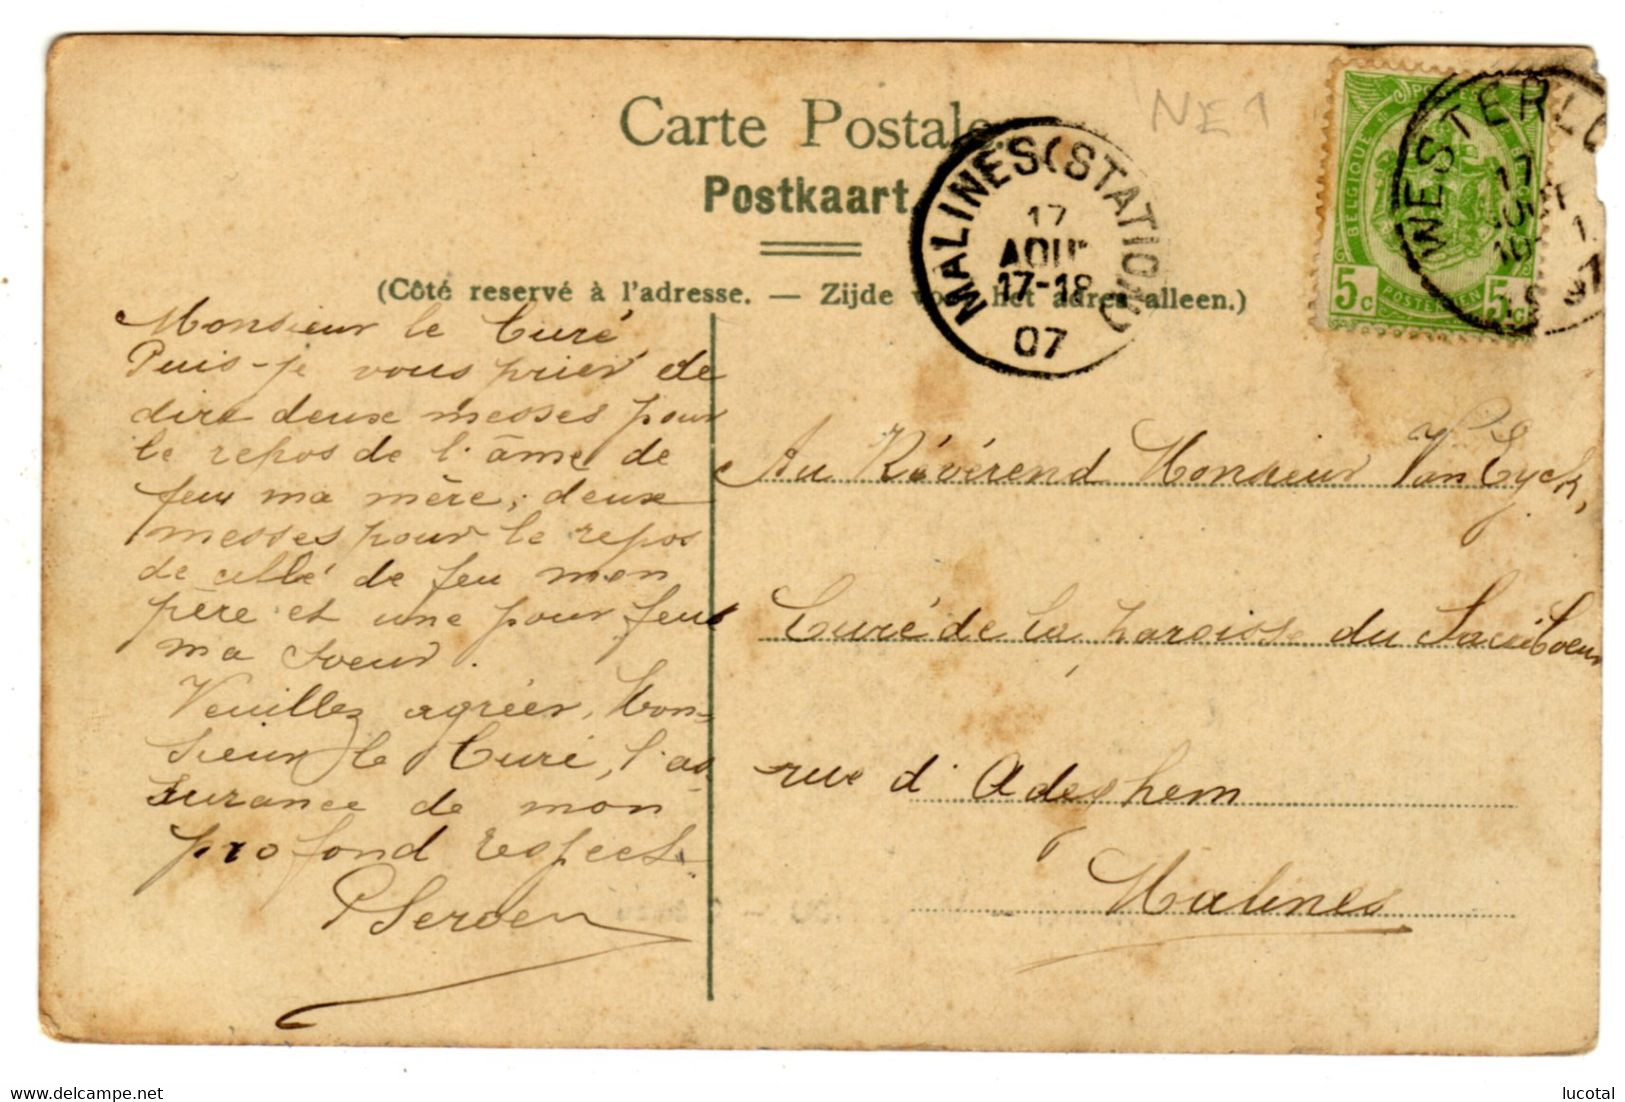 Carte Postale
Postkaart
(Côté reservé à l'adresse. — Zijde voor het adres alleen.)
NE1
MALINES (STATION)
17
AOUT
17-18
07
WESTERLO
17
BELGIQUE
5c
POSTERIJEN
5c
Monsieur le Curé
Puis-je vous prier de
dire deux messes pour
le repos de l'âme de
feu ma mère, deux
messes pour le repos
de celle de feu mon
père et une pour feue
ma soeur.
Veuillez agréer, Mon-
sieur le Curé, l'as
surance de mon
profond respect
Au Révérend Monsieur Van Eyck,
Curé de la paroisse du Sacré Coeur
rue d'Adeghem
Malines
lucotal